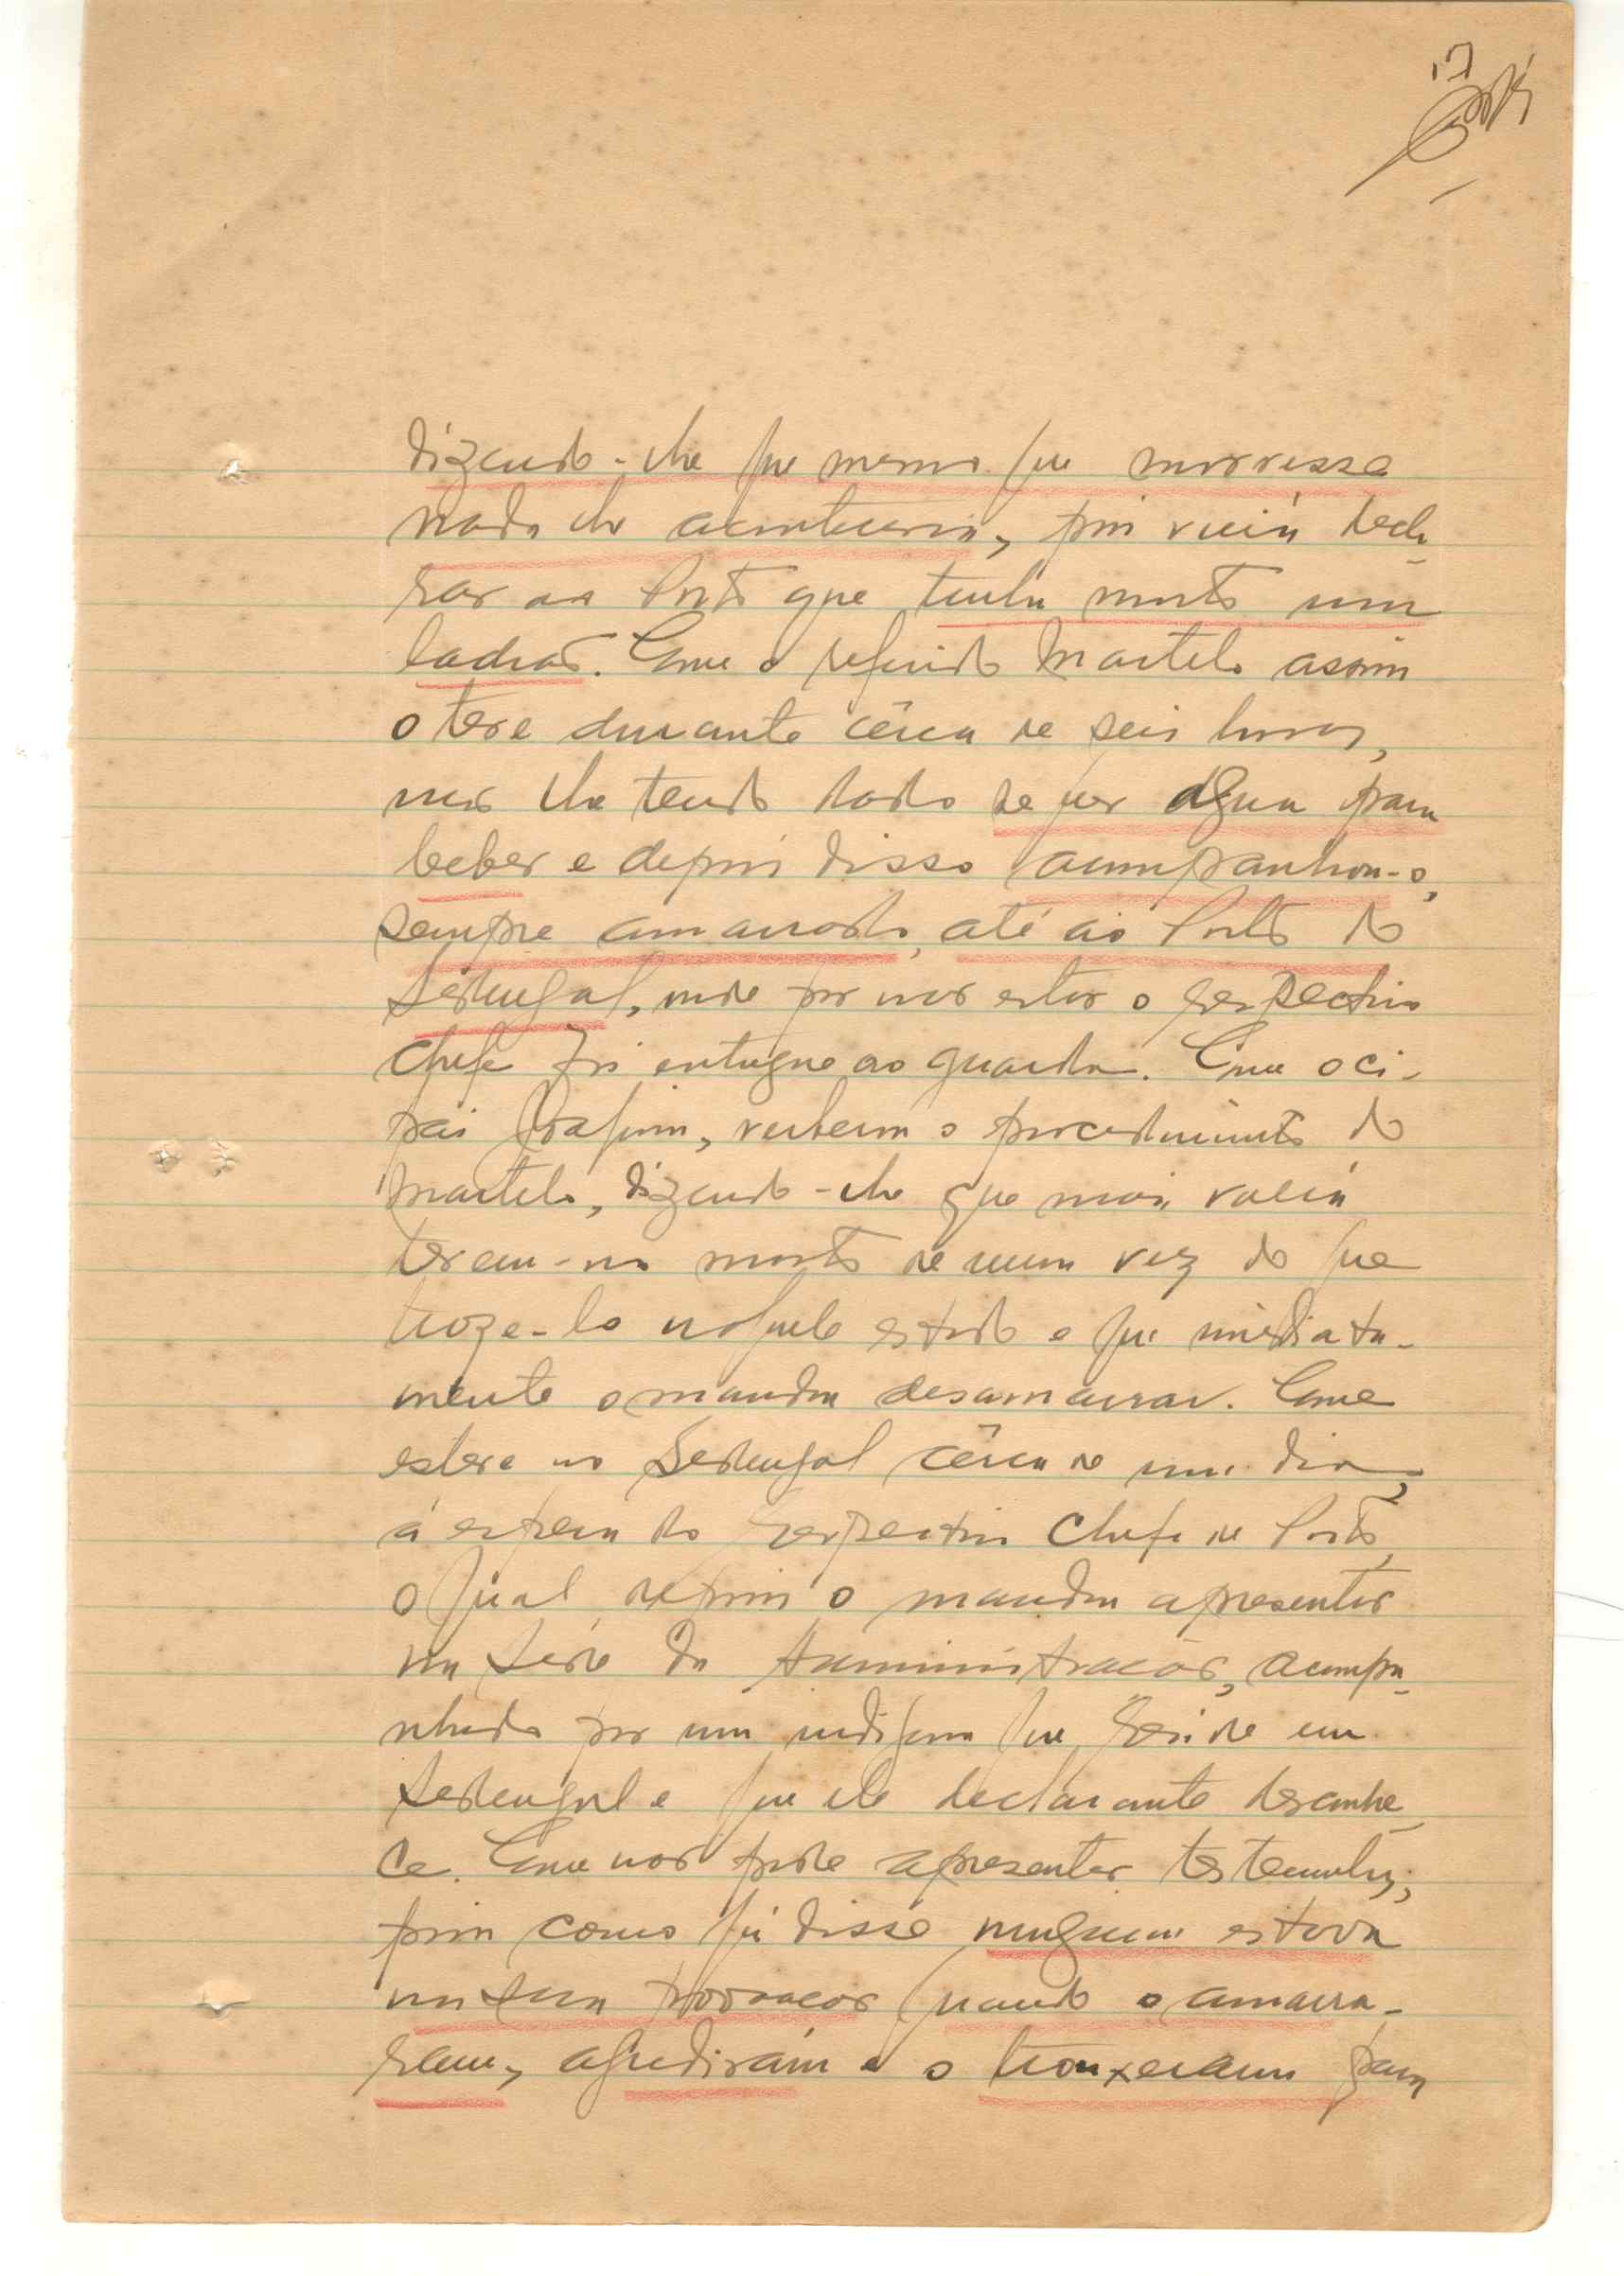 17
dizendo-lhe que mesmo que morresse
nada lhe aconteceria, pois viria decla-
rar ao Posto que tinha morto um
ladrão. Que o referido Martelo assim
o teve durante cêrca de seis horas,
não lhe tendo dado sequer água para
beber e depois disso acompanhou-o,
sempre amarrado, até ao Posto do
Sedengal, onde por não estar o respectivo
chefe foi entregue ao guarda. Que o ci-
pai, verberou o procedimento do
Martelo, dizendo-lhe que mais valia
terem-no morto de uma vez do que
traze-lo naquele estado e que imediata-
mente o mandou desamarrar. Que
esteve no Sedengal cêrca de um dia,
á espera do respectivo Chefe de Posto,
o qual depois o mandou apresentar
na Séde da Administração, acompa-
nhado por um indígena que reside em
Sedengal e que ele declarante desconhe-
ce. Que não pode apresentar testemunhas,
pois como já disse ninguem estava
na sua povoação quando o amarra-
ram, agrediram e o trouxeram para